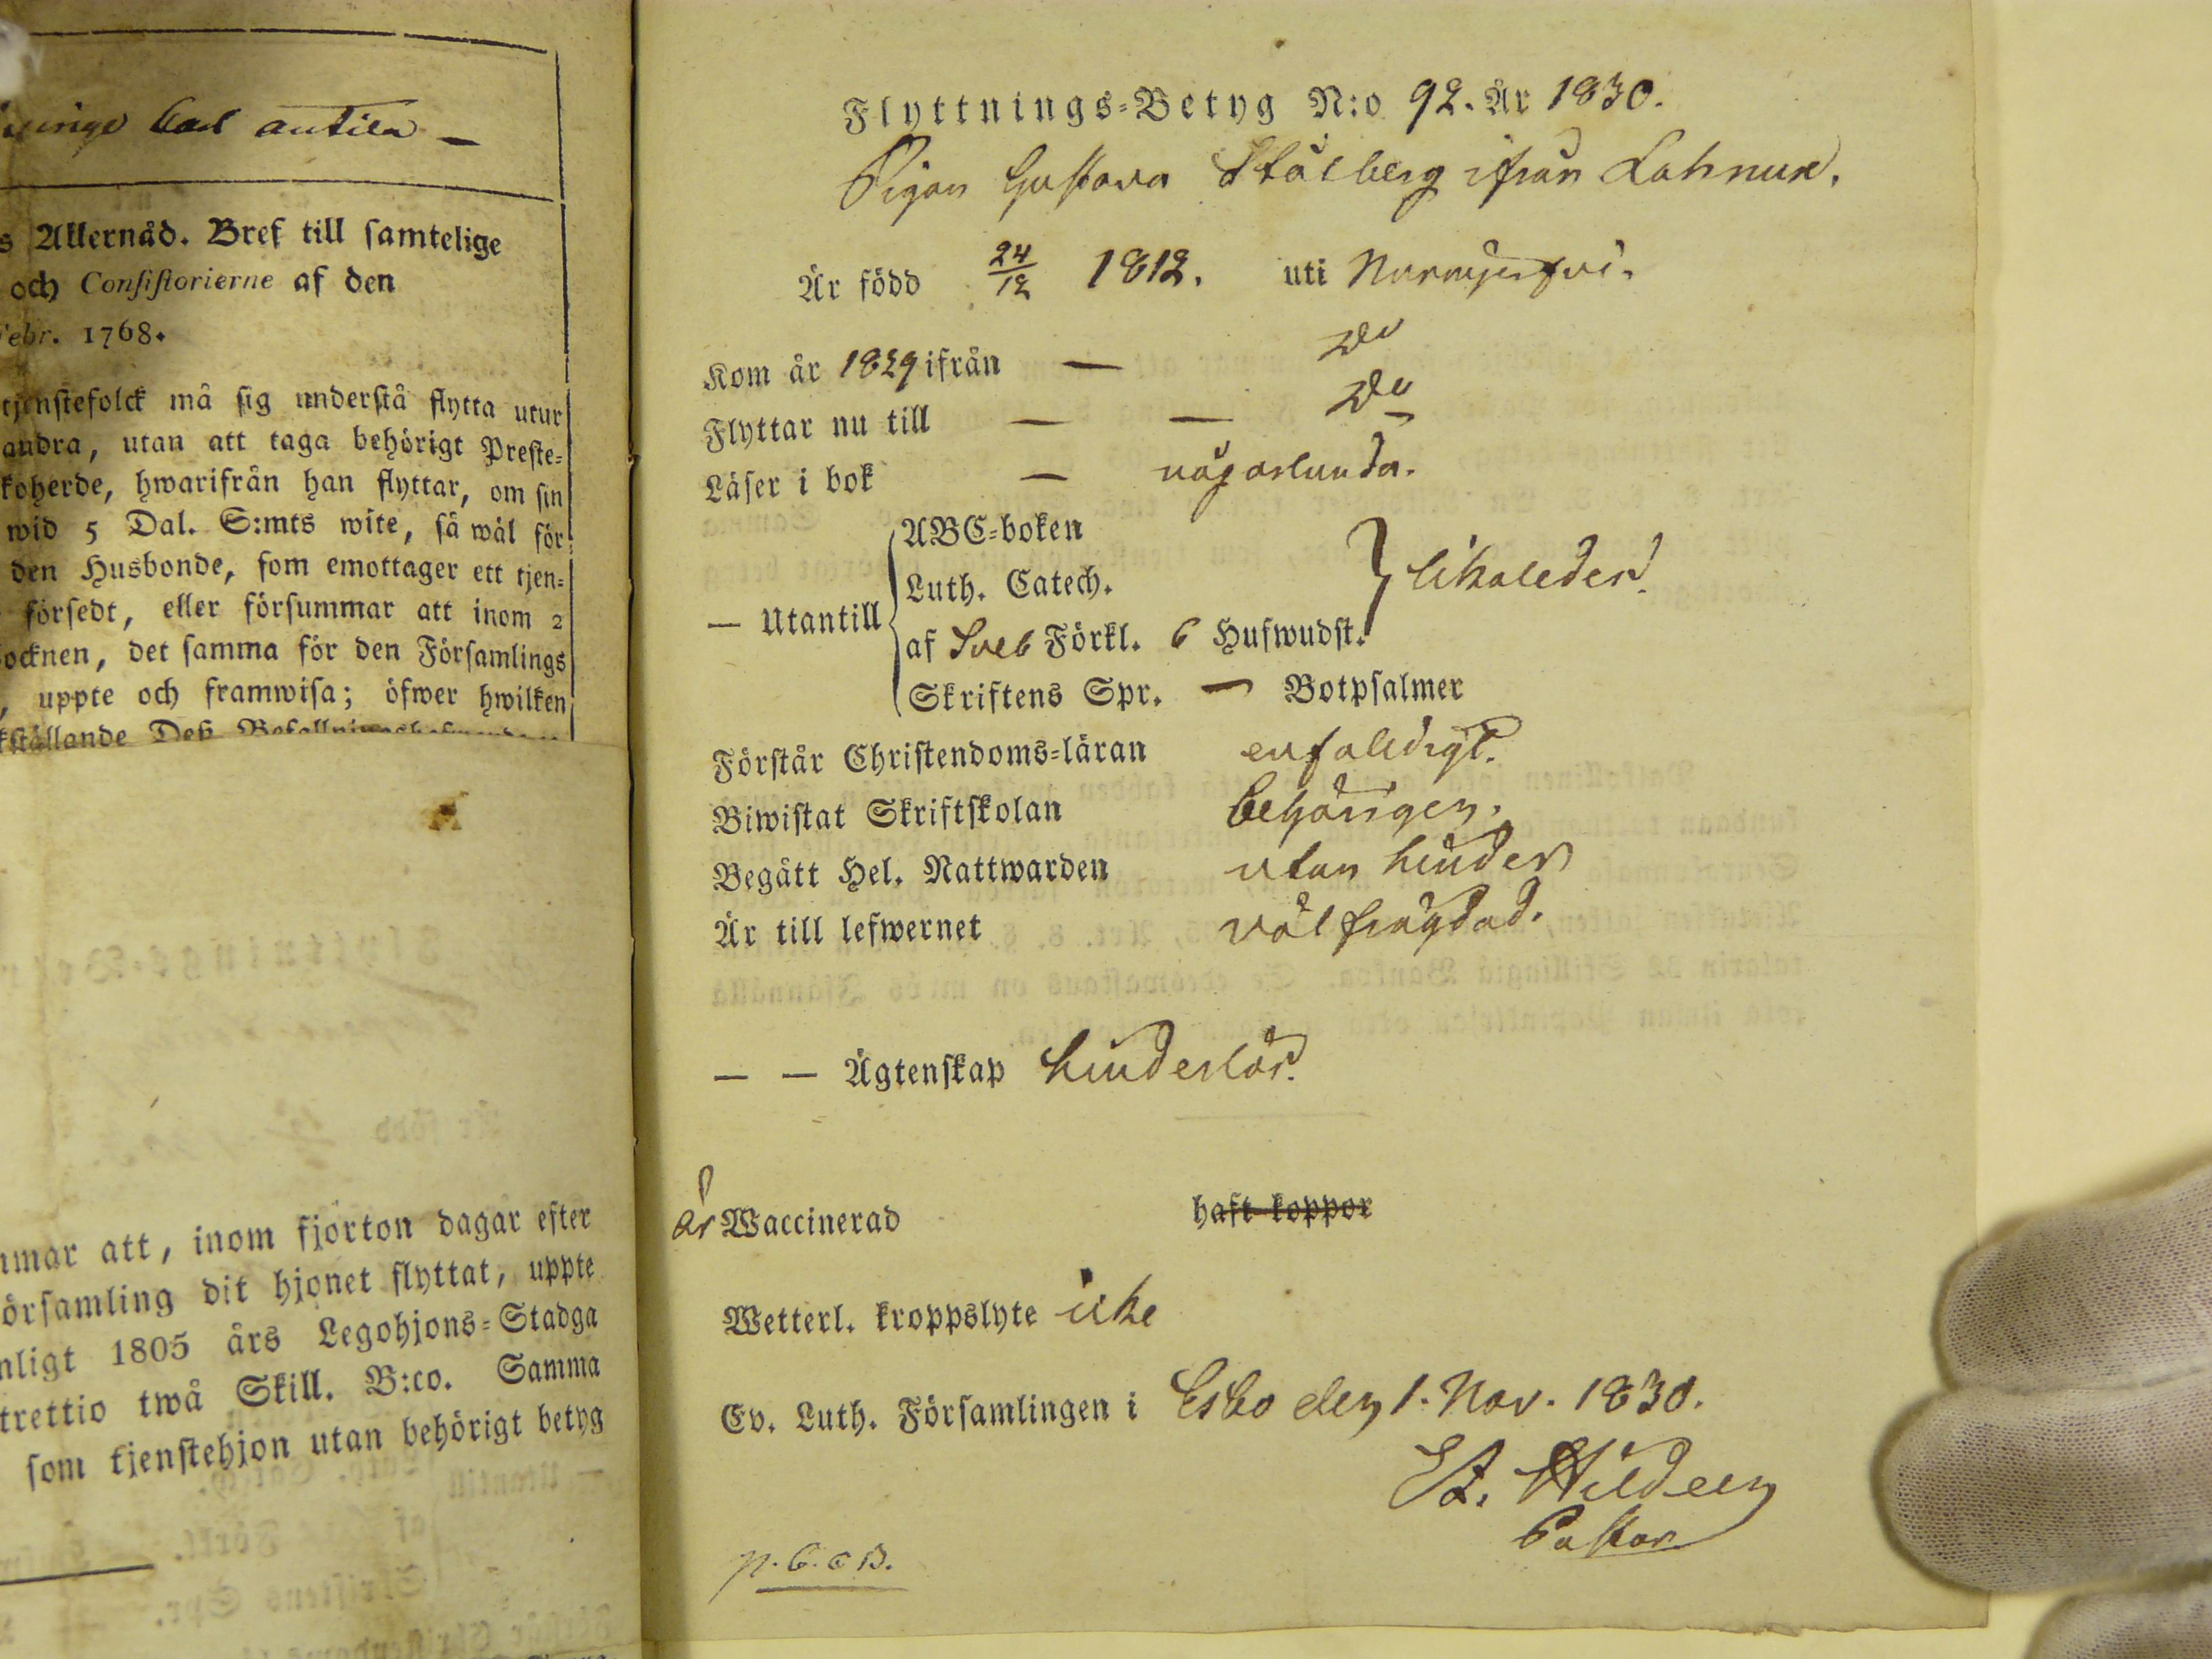 Carl Antila —
s Allernåd. Bref till samtelige
och Consistorierne af den
Febr. 1768.
tjenstefolck må sig understå flytta utur
andra, utan att taga behörigt Preste-
koherde, hwarifrån han flyttar, om sin
wid 5 Dal. S:mts wite, så wäl för
den Husbonde, som emottager ett tjen-
försedt, eller försummar att inom 2
ocknen, det samma för den Församlings
, uppte och framwisa; öfwer hwilken
kställande Deß
mmar att, inom fjorton dagar efter
örsamling dit hjonet flyttat, uppte
nligt 1805 års Legohjons-Stadga
trettio twå Skill. B:co. Samma
som tjenstehjon utan behörigt betyg
Flyttnings-Betyg N:o 92. År 1830.
Pigan Gustava Stålberg ifrån Lahnus.
Är född 24/12 1812. uti Nurmijerfvi.
Kom år 1829 ifrån — Do
Flyttar nu till — — Do
Läser i bok — någorlunda.
— Utantill
ABC-boken
Luth. Catech.
likaledes.
af Sveb Förkl. 6 Hufwudst.
Skriftens Spr. — Botpsalmer
Förstår Christendoms-läran enfaldigt.
Biwistat Skriftskolan behörigen.
Begått Hel. Nattwarden utan hinder
Är till lefwernet välfrägdad.
— — Ägtenskap hinderlös.
är Waccinerad haft koppor
Wetterl. kroppslyte icke
Ev. Luth. Församlingen i Esbo den 1. Nov. 1830.
Hildeen
Pastor